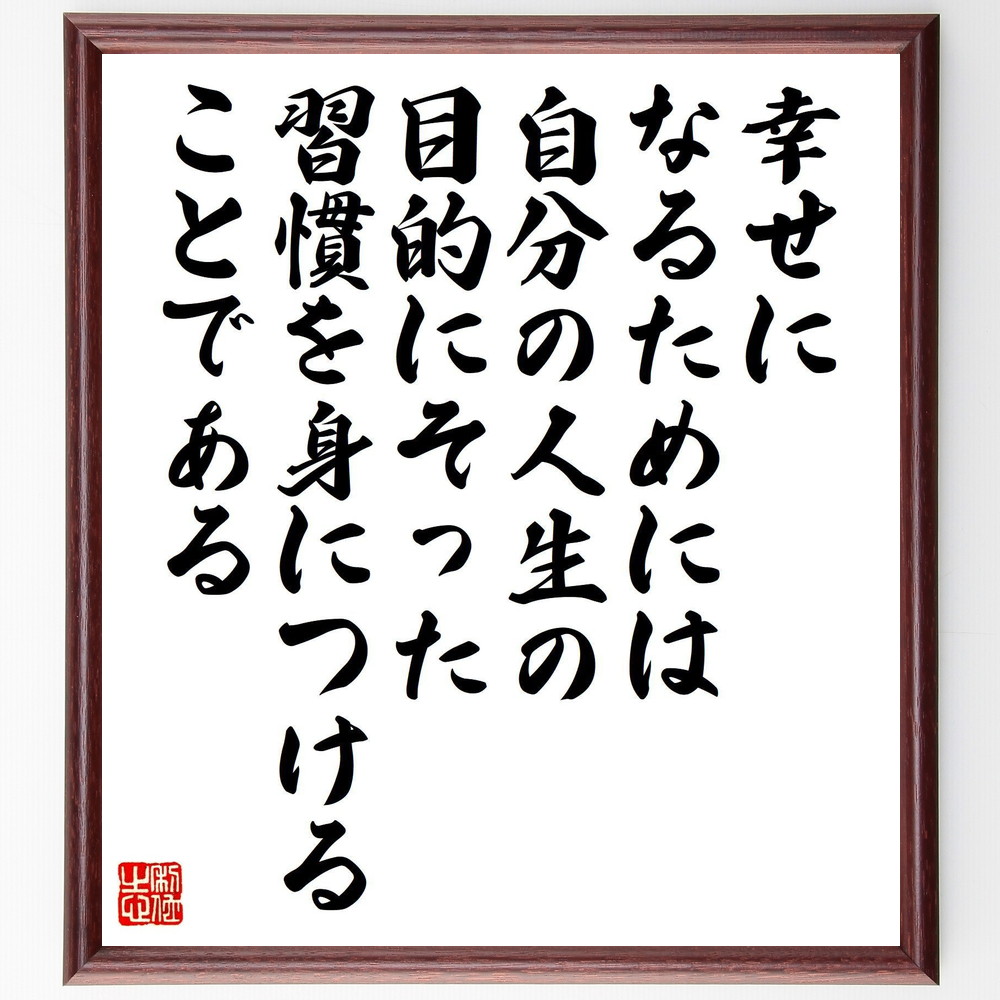 幸せに
なるためには
自分の人生の
目的にそった
習慣を身につける
ことである